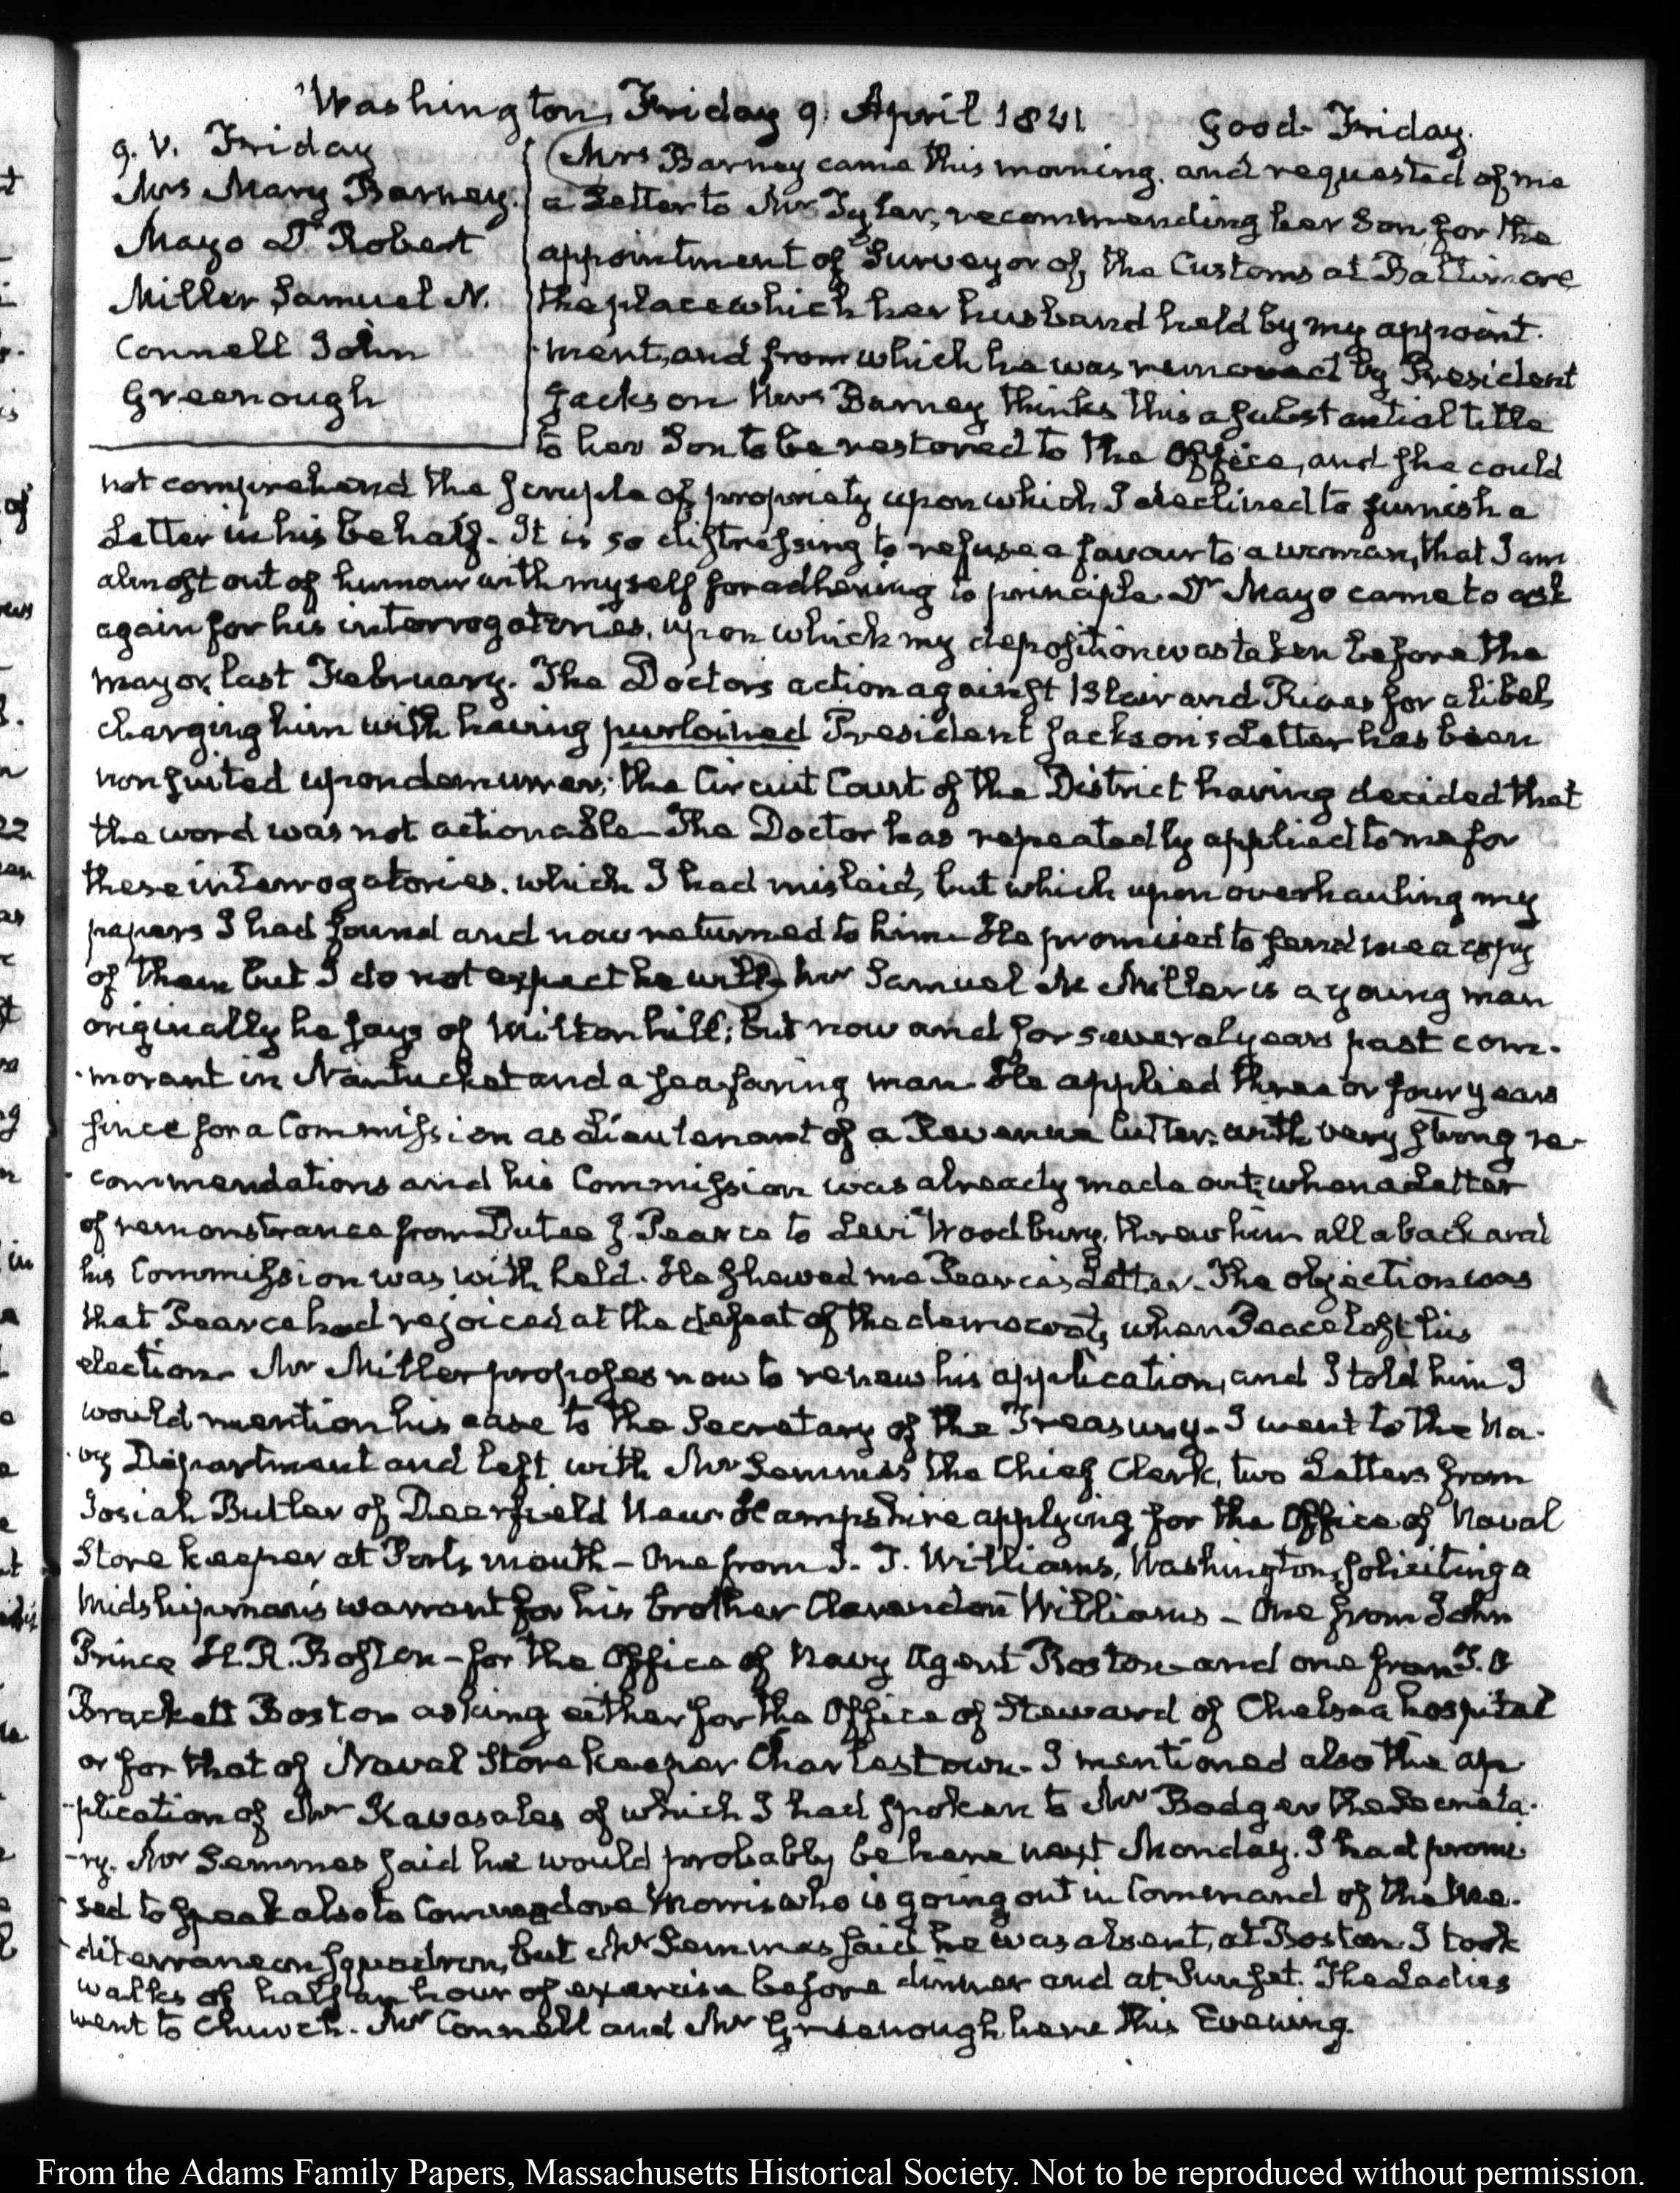 Washington, Friday 9. April 1841
Good-Friday.
9. V. Friday
Mrs Mary Barney.
Mayo Dr Robert
Miller Samuel N.
Connell John
Greenough
Mrs Barney came this morning, and requested of me
a Letter to Mr Tyler, recommending her Son, for the
appointment of Surveyor of, the Customs at Baltimore
the place which her husband held by my appoint-
-ment, and from which he was removed by President
Jackson Mrs Barney thinks this a substantial title
to her Son to be restored to the Office, and she could
not comprehend the scruple of propriety upon which I declined to furnish a
Letter in his behalf. It is so distressing to refuse a favour to a woman, that I am
almost out of humour with myself for adhering to principle. Dr Mayo came to ask
again for his interrogatories, upon which my deposition was taken before the
mayor, last February. The Doctors action against Blair and Rives for a libel
charging him with having purloined President Jackson's Letter has been
nonsuited upon demurrer; the Circuit Court of the District having decided that
the word was not actionable—The Doctor has repeatedly applied to me for
these interrogatories, which I had mislaid, but which upon overhauling my
papers I had found and now returned to him—He promised to send me a copy
of them but I do not expect he will. Mr Samuel N. Miller is a young man
originally he says of Milton hill; but now and for several years past com-
-morant in Nantucket and a seafaring man—He applied three or four years
since for a Commission as Lieutenant of a Revenue Cutter, with very strong re-
-commendations and his Commission was already made out; when a Letter
of remonstrance from Dutee J. Pearce to Levi Woodbury, threw him all aback and
his Commission was withheld. He shewed me Pearce's Letter. The objection was
that Pearce had rejoiced at the defeat of the democrats, when Peace lost his
election—Mr Miller proposes now to renew his application, and I told him I
would mention his case to the Secretary of the Treasury—I went to the Na-
-vy Department and left with Mr Semmes the Chief Clerk, two Letters from
Josiah Butler of Deerfield New-Hampshire applying for the Office of Naval
Store keeper at Portsmouth—One from J. T. Williams, Washington, soliciting a
Midshipman's warrant for his brother Clarendon Williams—One from John
Prince H. R. Boston—for the Office of Navy Agent Boston—and one from J. O
Brackett Boston asking either for the Office of Steward of Chelsea hospital
or for that of Naval Store keeper Charlestown. I mentioned also the ap-
-plication of Mr Kavasales of which I had spoken to Mr Badger the Secreta-
-ry. Mr Semmes said he would probably be here next Monday. I had promi-
sed to speak also to Commodore Morris who is going out in Command of the Me-
-diterranean squadron, but Mr Semmes said he was absent, at Boston. I took
walks of half an hour of exercise before dinner and at Sunset. The Ladies
went to Church. Mr Connell and Mr Greenough here this Evening.
From the Adams Family Papers, Massachusetts Historical Society. Not to be reproduced without permission.